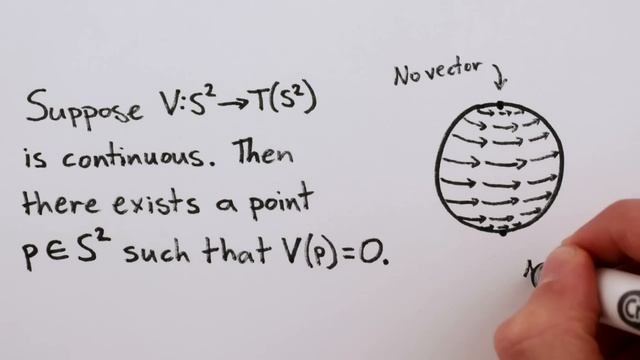 Suppose V:S²→T(S²)
is continuous. Then
there exists a point
p∈S² such that V(p)=0.
No vector